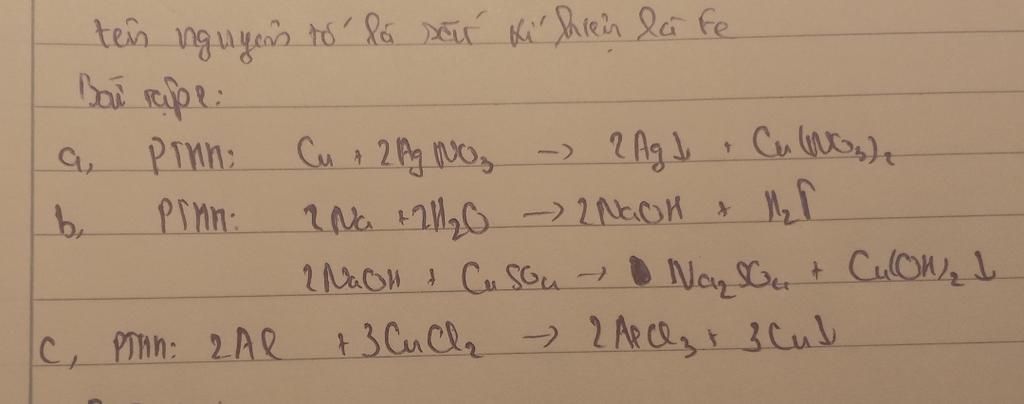 tên nguyên tố là sắt kí hiệu là Fe
Bài tập 2:
a, PTHH: Cu + 2AgNO₃ → 2Ag↓ + Cu(NO₃)₂
b, PTHH: 2Na + 2H₂O → 2NaOH + H₂↑
2NaOH + CuSO₄ → Na₂SO₄ + Cu(OH)₂↓
c, PTHH: 2Al + 3CuCl₂ → 2AlCl₃ + 3Cu↓